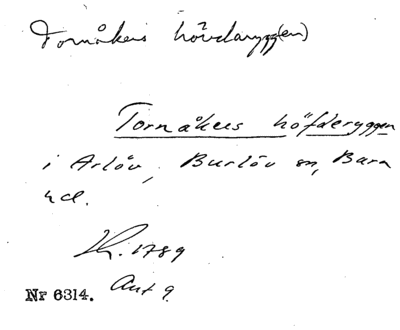 Tornåkers hövdarygg(en)
Tornåkers höfderyggen
i Arlöv, Burlöv sn, Bara
hd.
1789
Nr 6314. Akt 9.